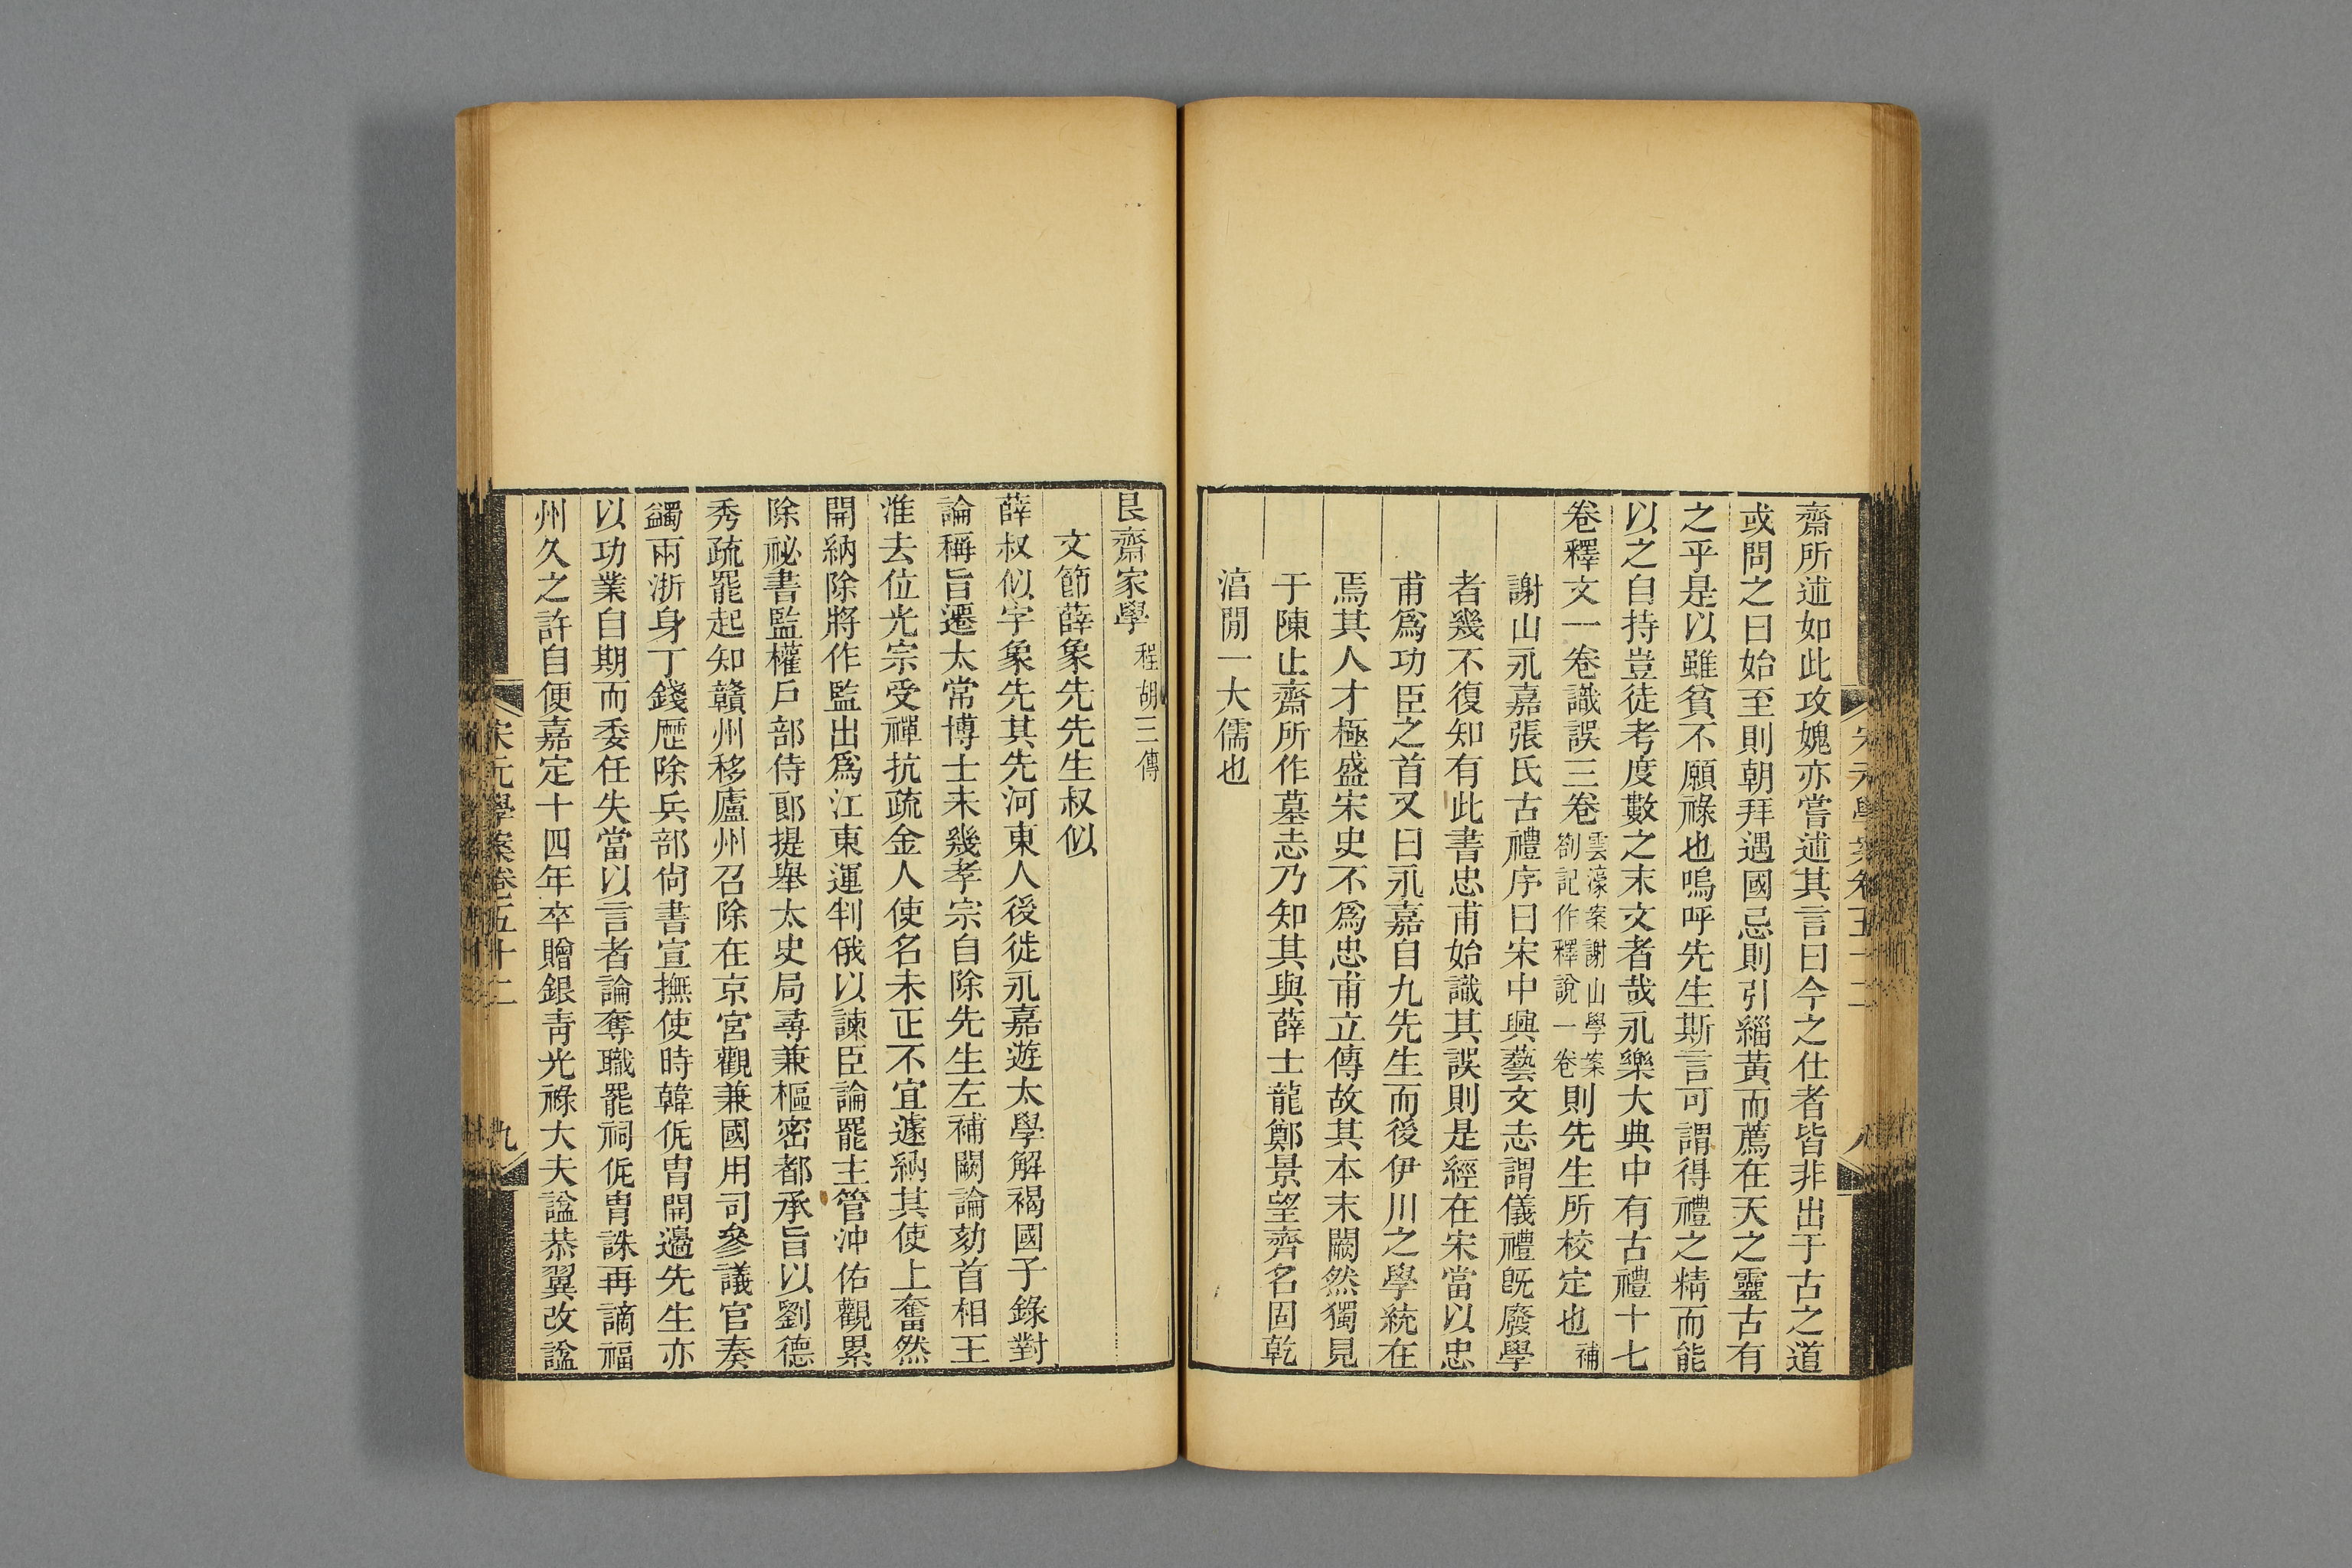 齋所述如此攻媿亦嘗述其言曰今之仕者皆非出于古之道
或問之曰始至則朝拜遇國忌則引緇黃而薦在天之靈古有
之乎是以雖貧不願祿也嗚呼先生斯言可謂得禮之精而能
以之自持豈徒考度數之末文者哉永樂大典中有古禮十七
卷釋文一卷識誤三卷雲濠案謝山學案劄記作釋說一卷則先生所校定也補
謝山永嘉張氏古禮序曰宋中興藝文志謂儀禮旣廢學
者幾不復知有此書忠甫始識其誤則是經在宋當以忠
甫爲功臣之首又曰永嘉自九先生而後伊川之學統在
焉其人才極盛宋史不爲忠甫立傳故其本末闕然獨見
于陳止齋所作墓志乃知其與薛士龍鄭景望齊名固乾
湻閒一大儒也
艮齋家學程胡三傳
文節薛象先先生叔似
薛叔似字象先其先河東人後徙永嘉遊太學解褐國子錄對
論稱旨遷太常博士未幾孝宗自除先生左補闕論劾首相王
淮去位光宗受禪抗疏金人使名未正不宜遽納其使上奮然
開納除將作監出爲江東運判俄以諫臣論罷主管沖佑觀累
除祕書監權戶部侍郎提舉太史局尋兼樞密都承旨以劉德
秀疏罷起知贛州移廬州召除在京宮觀兼國用司參議官奏
蠲兩浙身丁錢歷除兵部尙書宣撫使時韓侂胄開邊先生亦
以功業自期而委任失當以言者論奪職罷祠侂胄誅再謫福
州久之許自便嘉定十四年卒贈銀靑光祿大夫諡恭翼改諡
宋元學案卷五十二
九